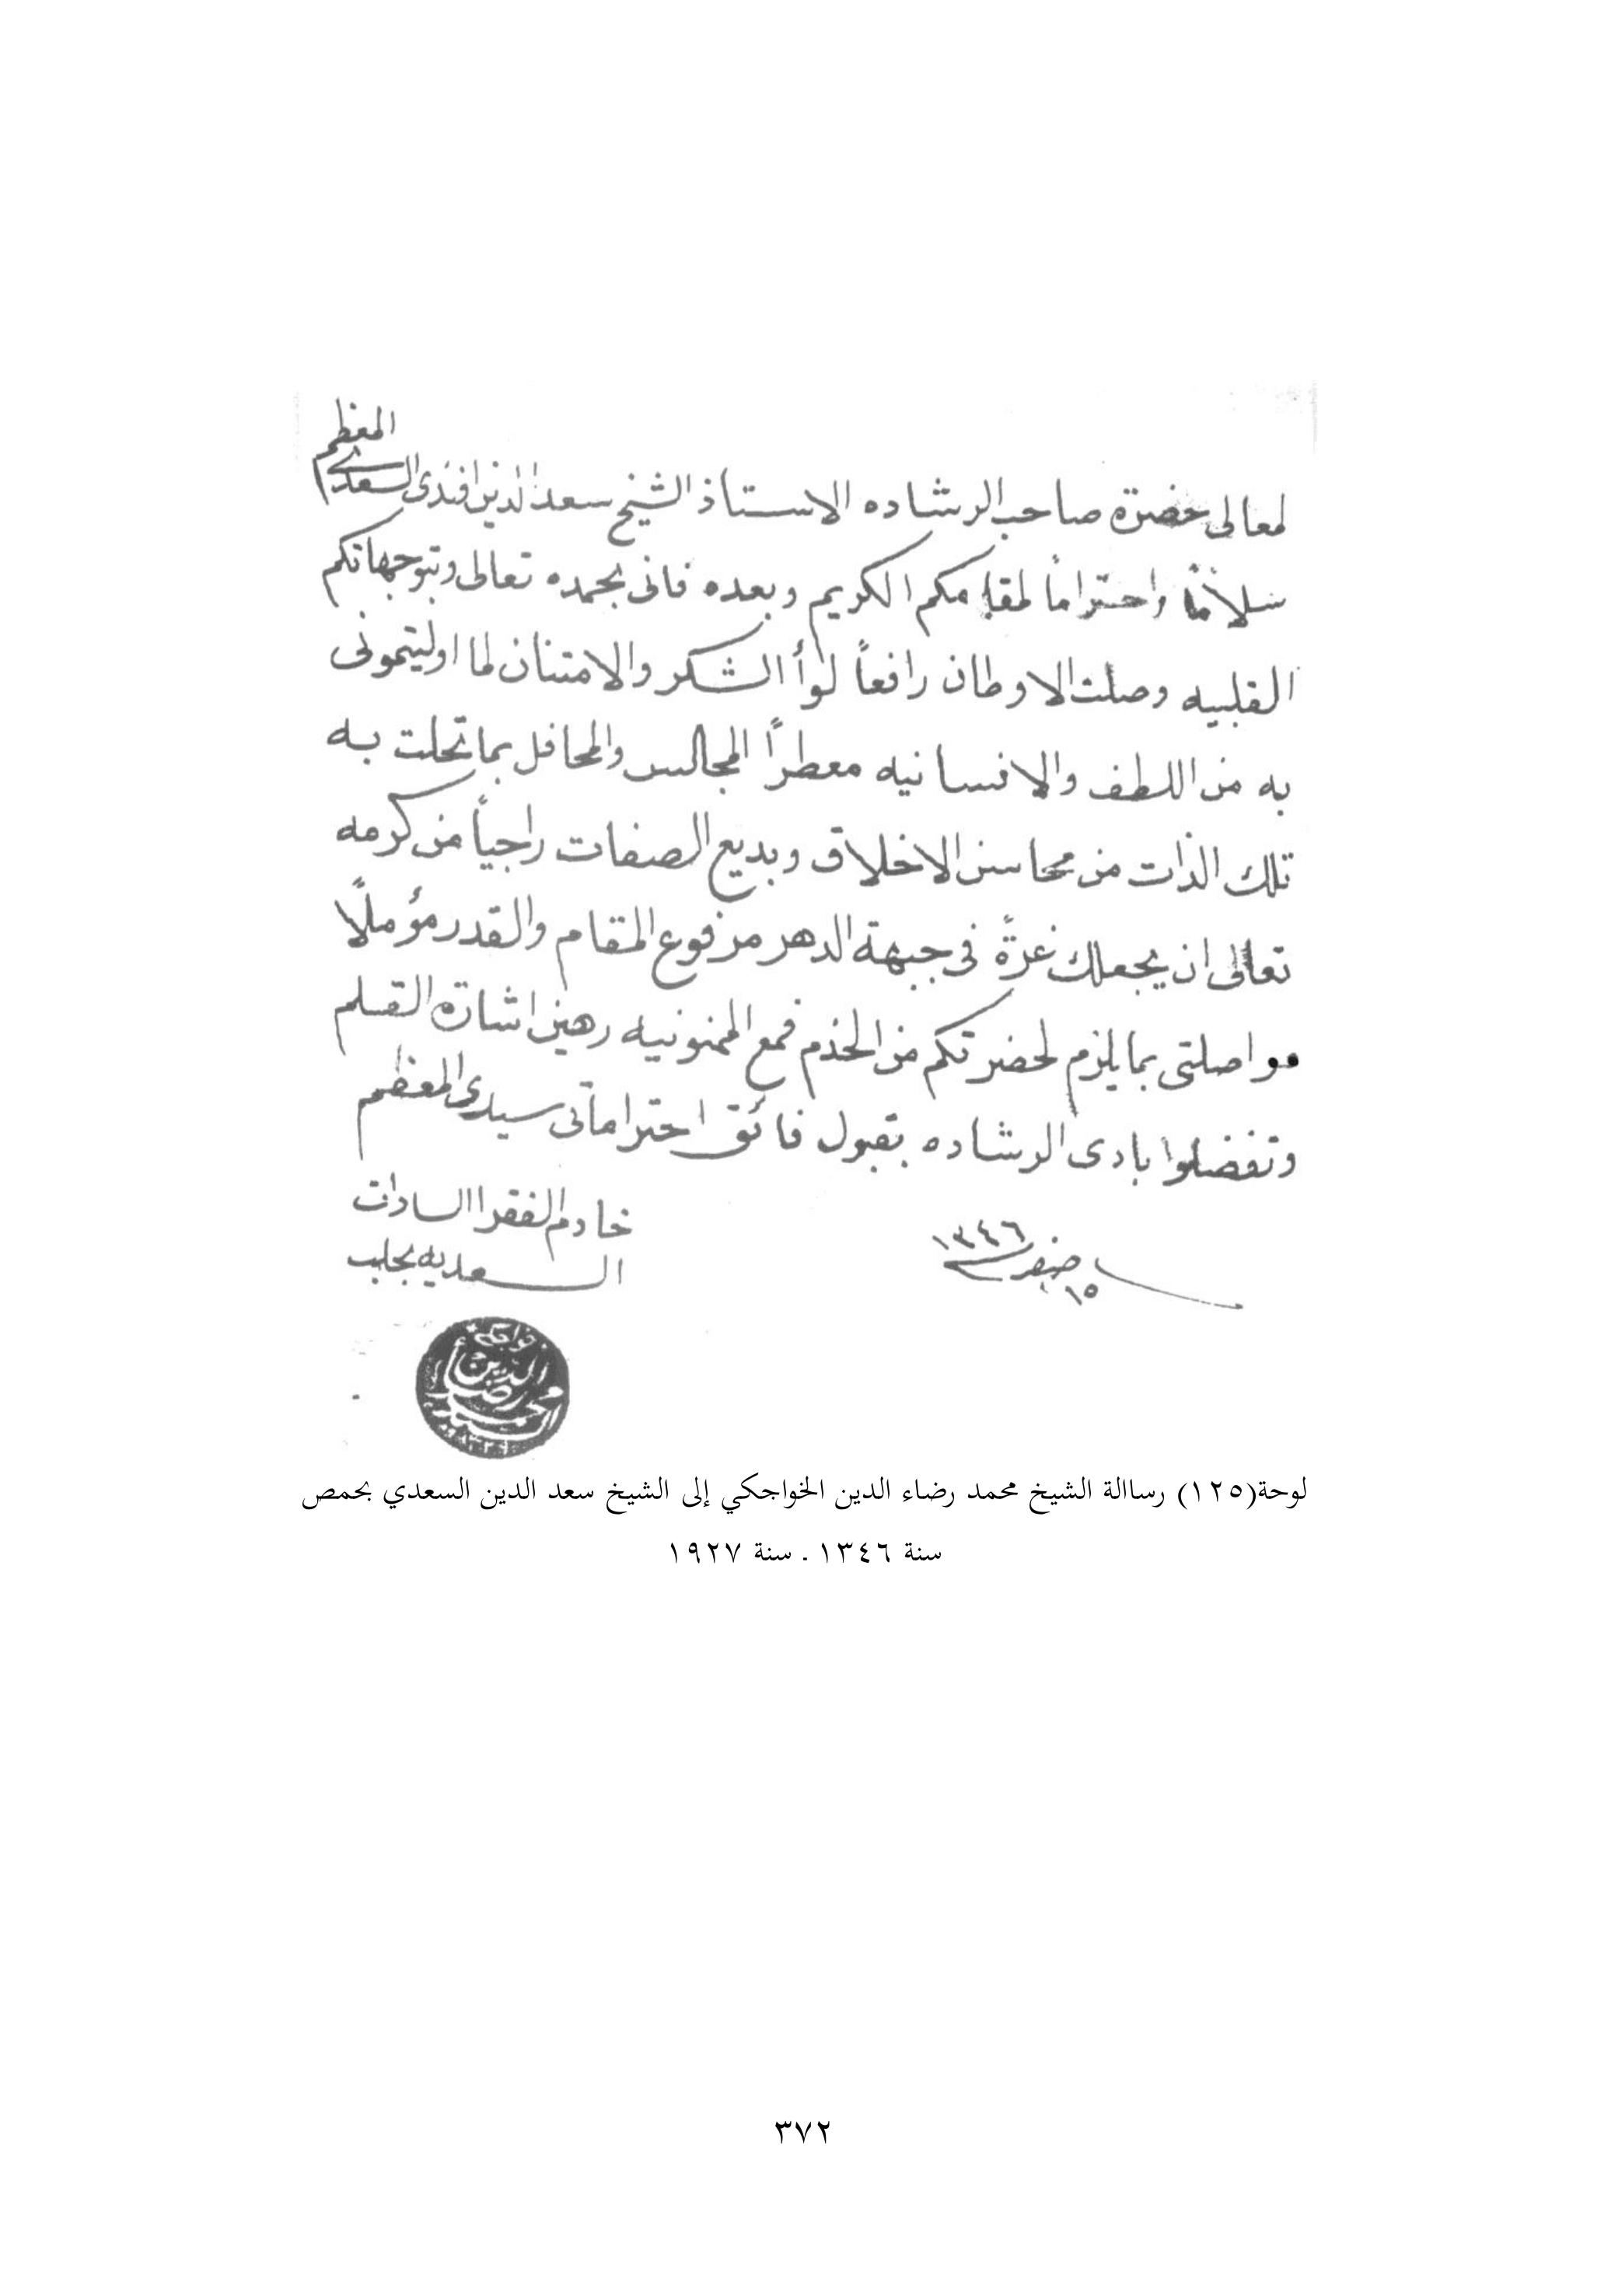 لمعالى حضرة صاحب الرشاده الاستاذ الشيخ سعد الدين افندى السعدى المعظم
سلاماً واحتراماً لمقامكم الكريم وبعده فانى بحمده تعالى وبتوجهاتكم
القلبيه وصلت الاوطان رافعاً لوأ الشكر والامتنان لما اوليتمونى
به من اللطف والانسانيه معطراً المجالس والمحافل بما تحلت به
تلك الذات من محاسن الاخلاق وبديع الصفات راجياً من كرمه
تعالى ان يجعلك غرةً فى جبهة الدهر مرفوع المقام والقدر مؤملاً
مواصلتى بما يلزم لحضرتكم من الخذم فمع الممنونيه رهين اشارة القلم
وتفضلوا بادى الرشاده بقبول فائق احتراماتى سيدى المعظم
خادم الفقرا السادات
السعديه بحلب
١٥ صفر ١٣٤٦
خواجكي
محمد رضاء الدين
لوحة(١٢٥) رساالة الشيخ محمد رضاء الدين الخواجكي إلى الشيخ سعد الدين السعدي بحمص
سنة ١٣٤٦ . سنة ١٩٢٧
٣٧٢